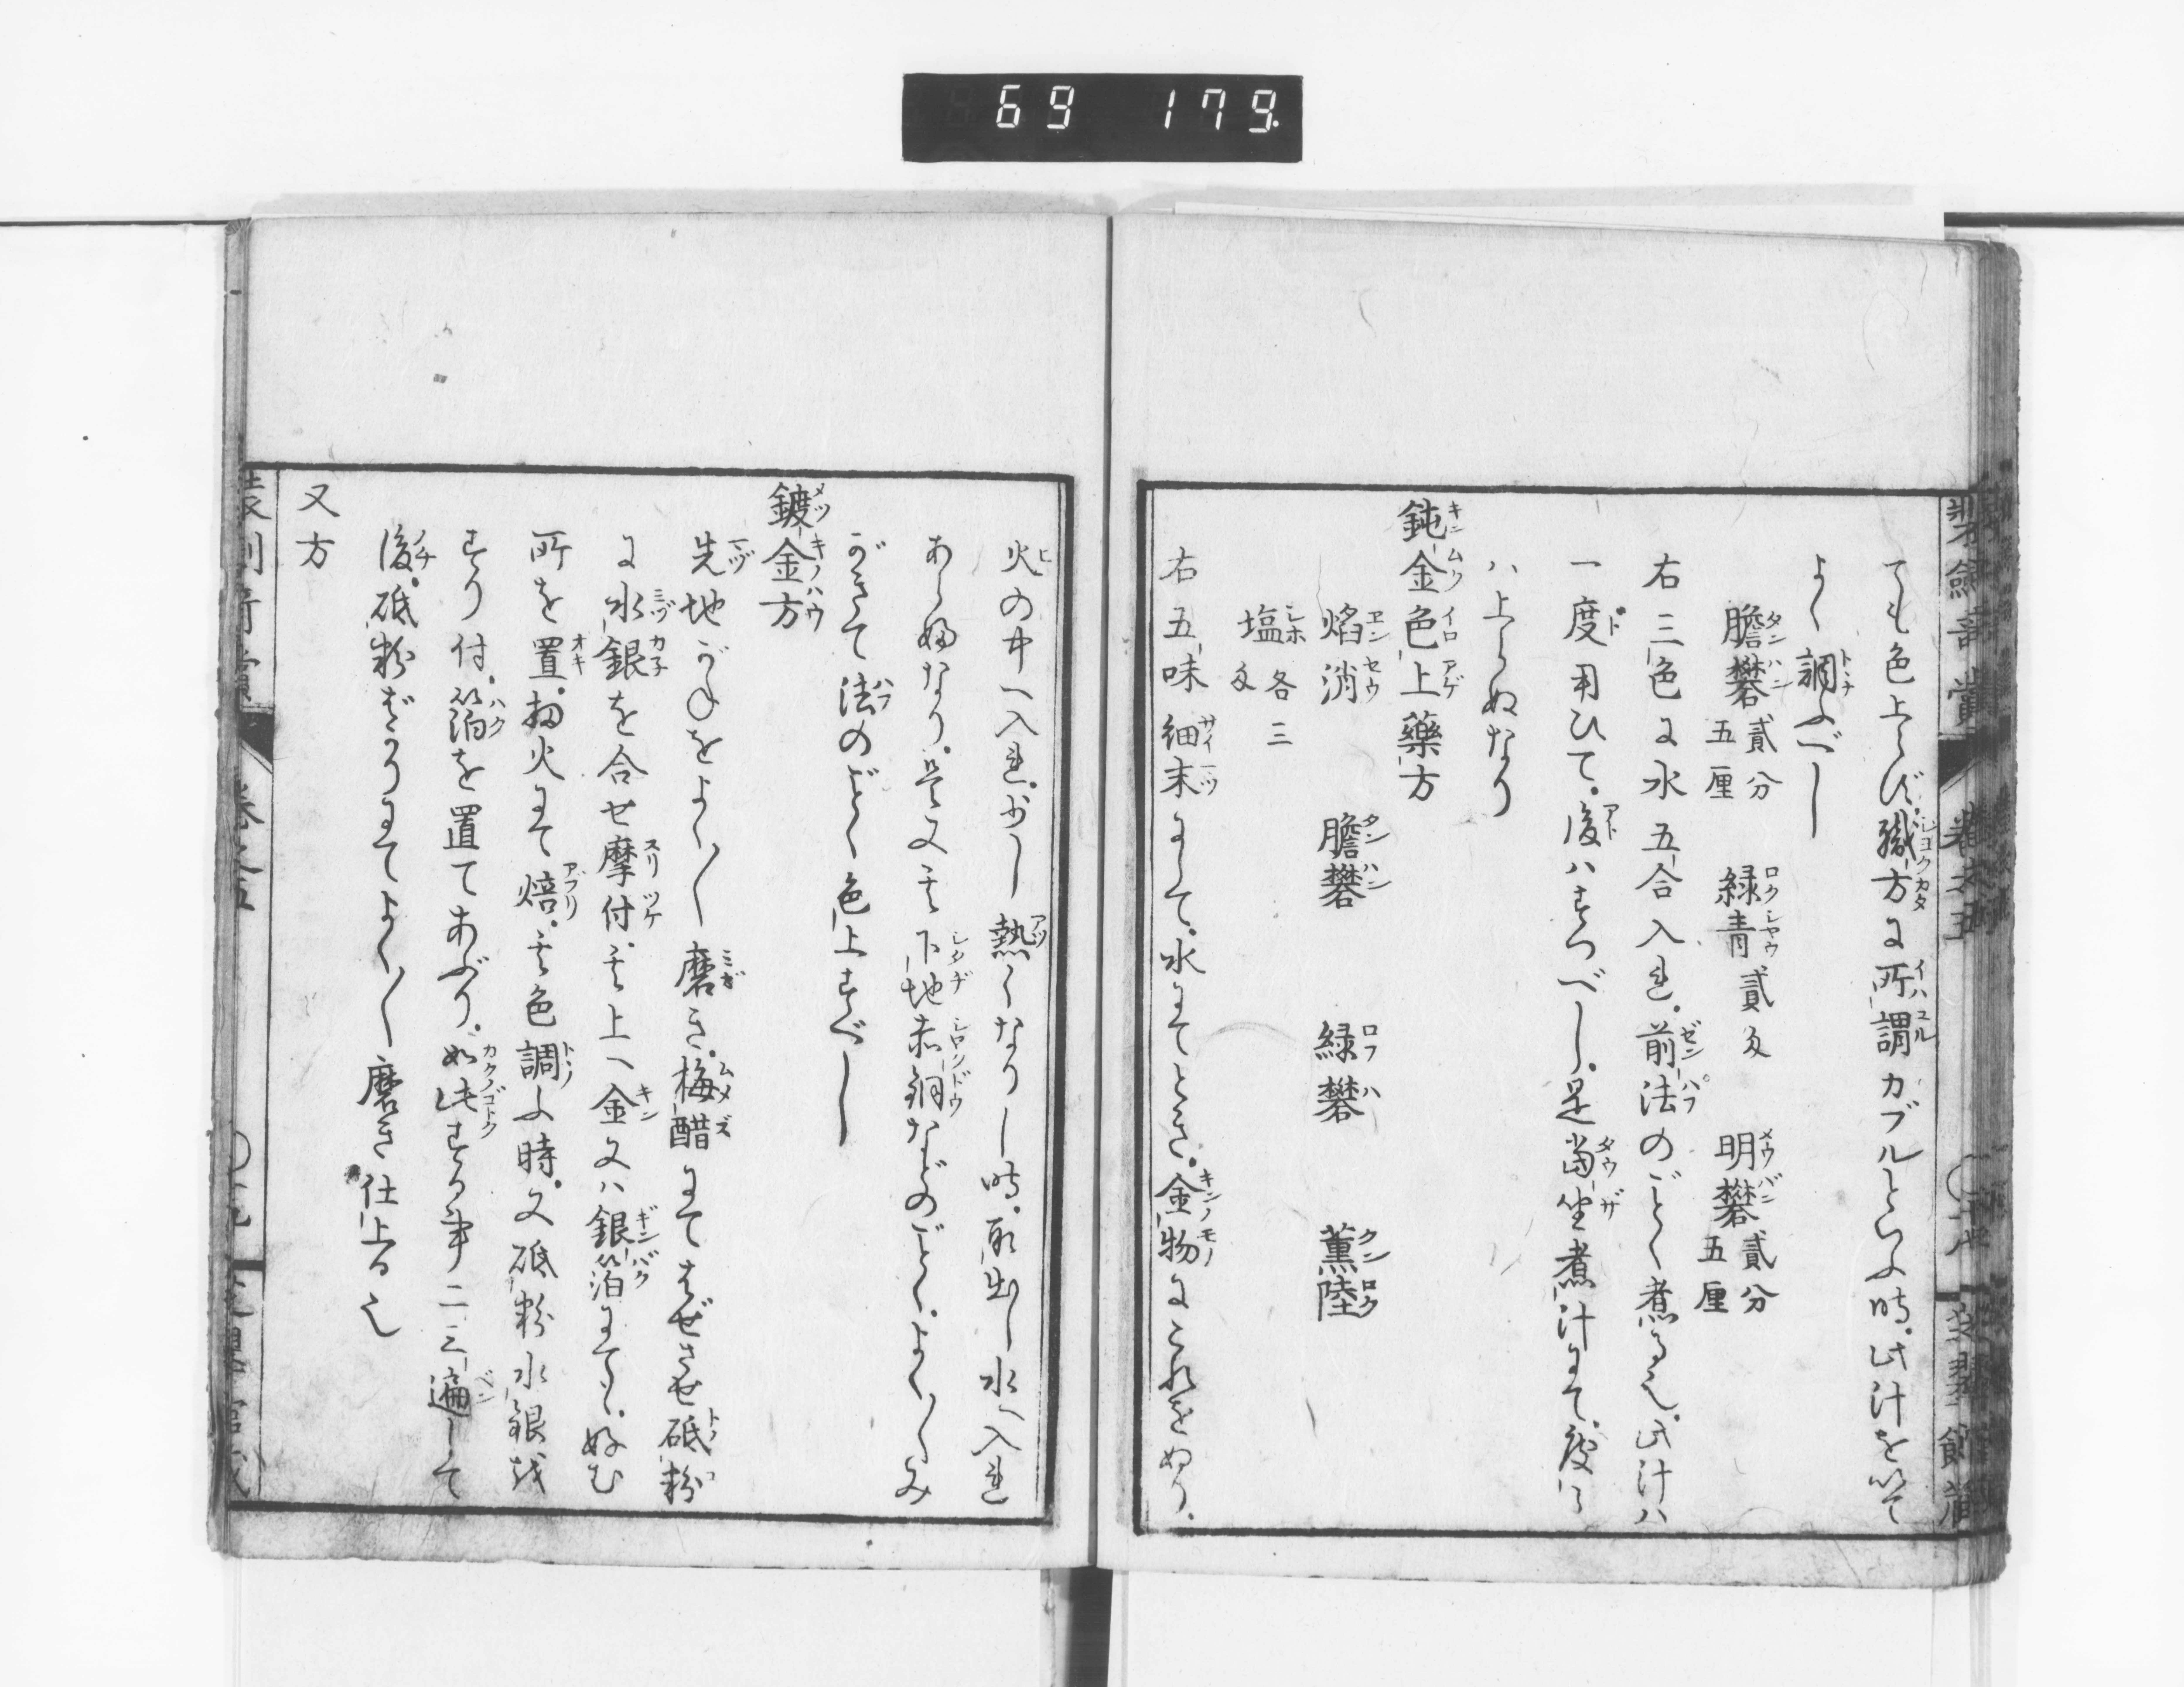 69 179.
ても色上らず。職方に所謂カブルといふ時。此汁を以て
よく調ふべし
膽礬 貳分五厘 緑青 貳匁 明礬 貳分五厘
右三色に水五合入れ。前法のごとく煮る也。此汁ハ
一度用ひて。後ハすつべし。是當坐煮汁にて。度々
ハ上らぬなり
鈍金色上藥方
焰消 膽礬 緑礬 薫陸
塩 各三匁
右五味細末にして。水にてとき。金物にこれをぬり。
火の中へ入れ。少し熱くなりし時。取出し水へ入れ
あらふなり。是又其下地赤銅などのごとく。よく〱み
がきて法のごとく色上すべし
鍍金方
先地がねをよく〱磨き。梅醋にてはぜさせ砥粉
に水銀を合せ摩付。其上へ金又ハ銀箔にても。好む
所を置。扨火にて焙。其色調ふ時。又砥粉水銀を
すり付。箔を置てあぶり。如此する事二三遍して
後。砥粉ばかりにてよく〱磨き仕上る也
又方